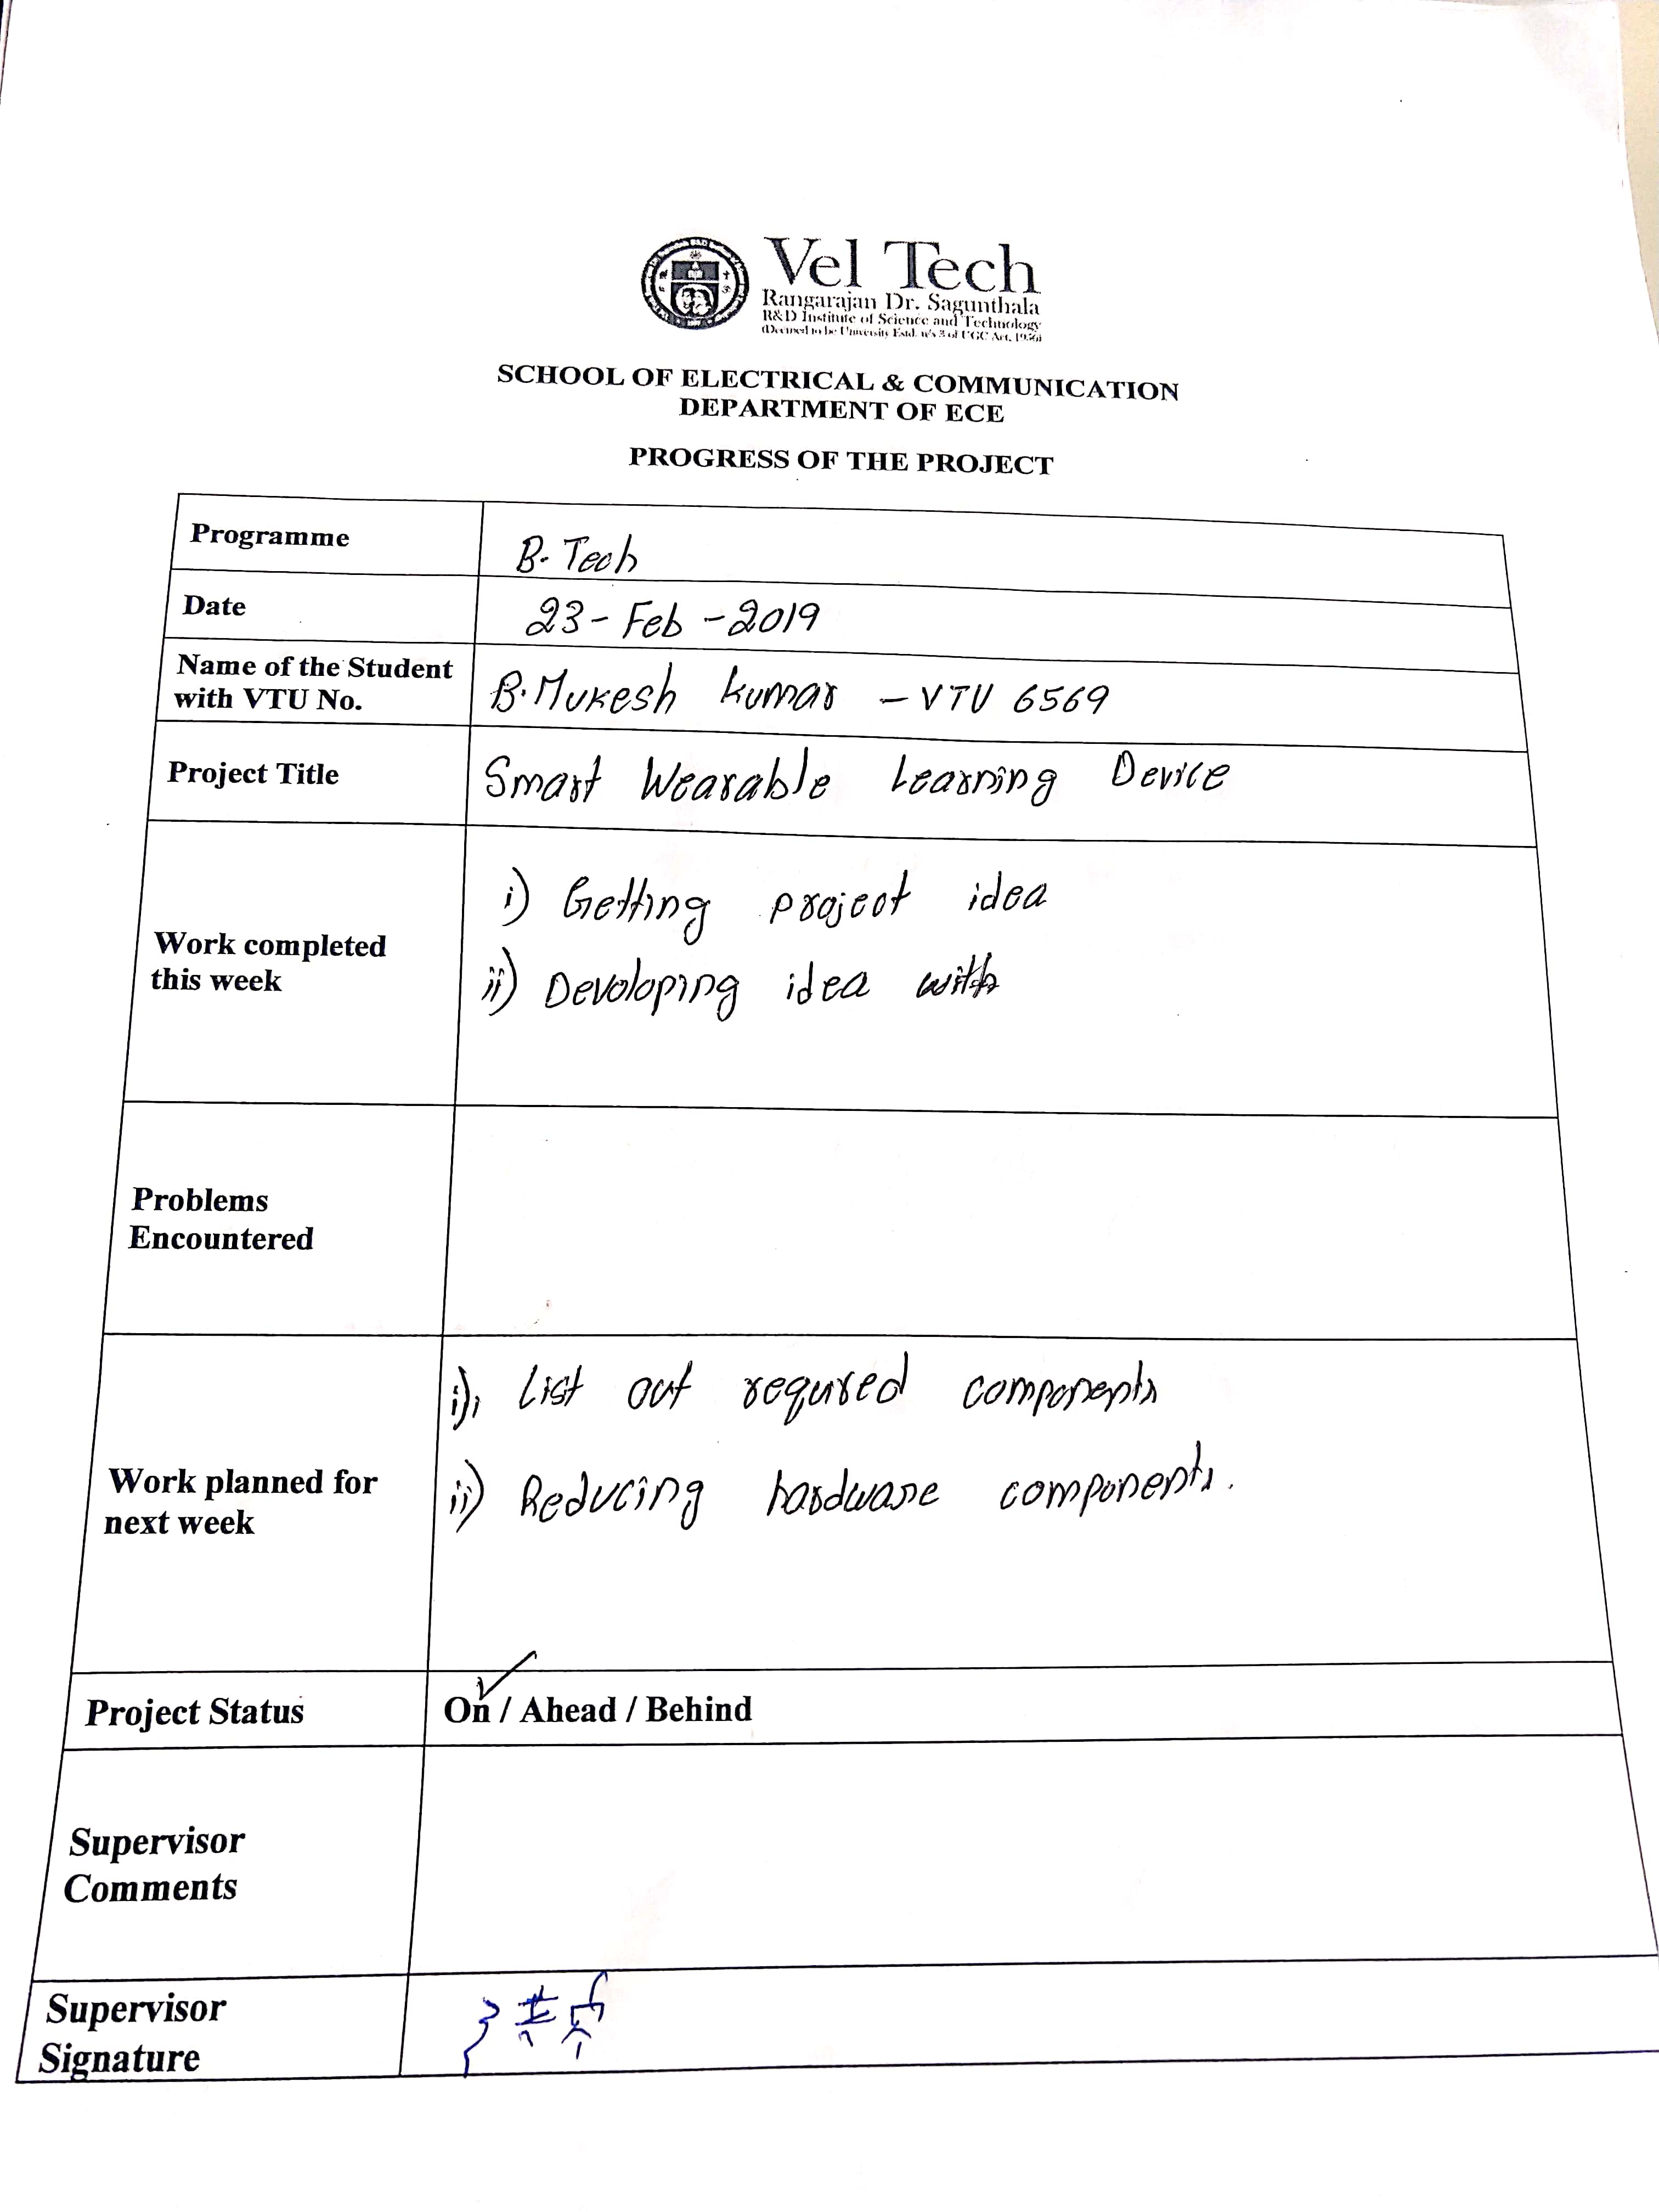 Vel Tech
Rangarajan Dr. Sagunthala
R&D Institute of Science and Technology
(Deemed to be University Estd. u/s 3 of UGC Act, 1956)
SCHOOL OF ELECTRICAL & COMMUNICATION
DEPARTMENT OF ECE
PROGRESS OF THE PROJECT
Programme
B. Tech
Date
23-Feb-2019
Name of the Student
with VTU No.
B. Mukesh kumar - VTU 6569
Project Title
Smart Wearable Learning Device
Work completed
this week
i) Getting project idea
ii) Devoloping idea with
Problems
Encountered
Work planned for
next week
i) List out requred components
ii) Reducing hardware components.
Project Status
On / Ahead / Behind
Supervisor
Comments
Supervisor
Signature